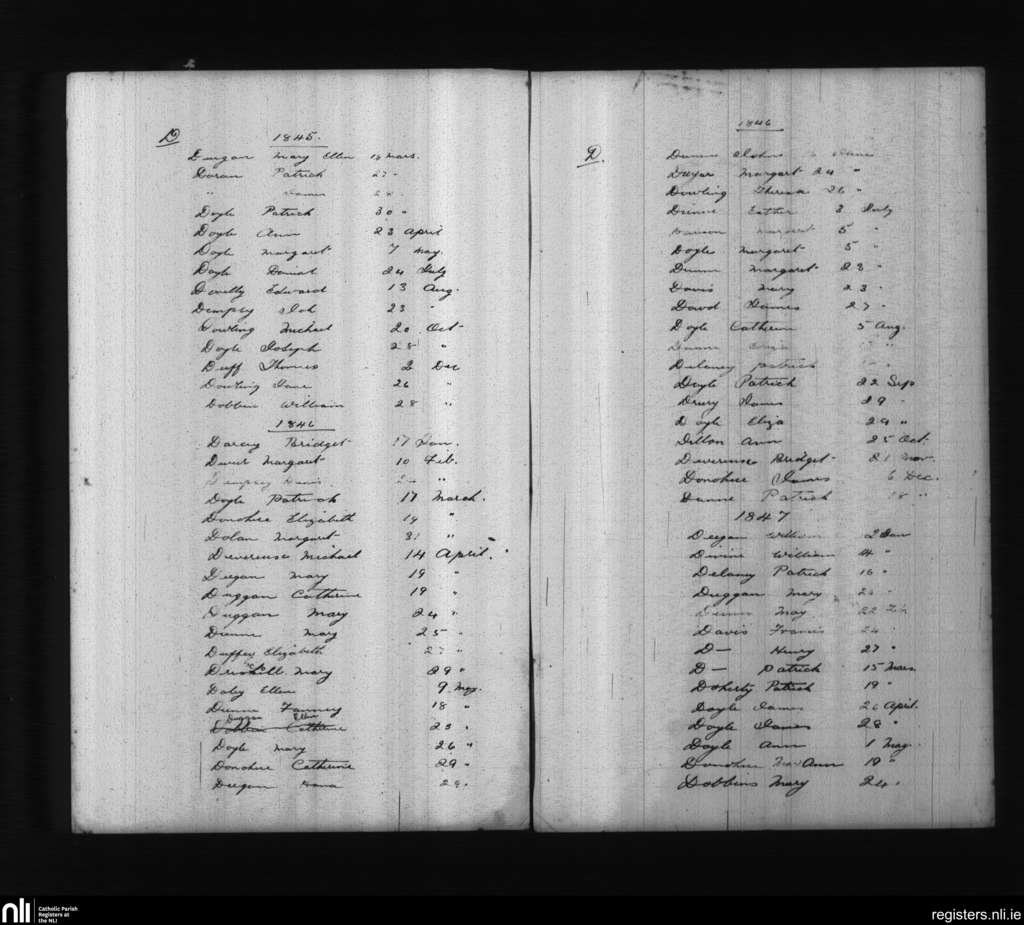 D
1845.
Duegan Mary Ellen 18 Mars.
Doran Patrick 27 "
" James 28 "
Doyle Patrick 30 "
Doyle Ann 23 April
Doyle Margaret 7 May.
Doyle Daniel 24 July
Donelly Edward 13 Aug.
Dempsey 23 "
Dowling Michael 20 Oct
Doyle Joseph 28 "
Duff Thomas 2 Dec
Dowling Jane 26 "
Dobbin William 28 "
1846
Darcey Bridget 17 Jan.
Margaret 10 Feb.
Dempsey "
Doyle Patrick 17 March.
Donohue Elizabeth 19 "
Dolan Margaret 31 "
Devereuse Michael 14 April.
Deegan Mary 19 "
Duggan Catherine 19 "
Duggan Mary 24 "
Dunne Mary 25 "
Duffey Elizabeth 27 "
Mary 29 "
Daley Ellen 9 May.
Dunne Fanney 18 "
Duggan Ellen
Dobbin Catherine 23 "
Doyle Mary 26 "
Donohue Catherine 29 "
Deegan 29 "
D.
1846
Dunne John June
Dwyer Margaret 24 "
Dowling Theresa 26 "
Dunne Esther 3 July
Margaret 5 "
Doyle Margaret 5 "
Dunne Margaret 23 "
Davis Mary 23 "
Dowd James 27 "
Doyle Catherine 5 Aug.
Dunne Eliza "
Delaney Patrick "
Doyle Patrick 22 Sep
Drury James 29 "
Doyle Eliza 29 "
Dillon Ann 25 Oct.
Devereuse Bridget 21 Nov.
Donohue James 6 Dec.
Dunne Patrick 18 "
1847
Deegan William 2 Jan
Divine William 4 "
Delany Patrick 16 "
Duggan Mary 20 "
Dunne May 22 Feb
Davis Francis 24 "
D— Henry 27 "
D— Patrick 15 Mars
Doherty Patrick 19 "
Doyle James 26 April
Doyle James 28 "
Doyle Ann 1 May
Donohue Mar Ann 19 "
Dobbins Mary 24 "
nli
Catholic Parish
Registers at
the NLI
registers.nli.ie